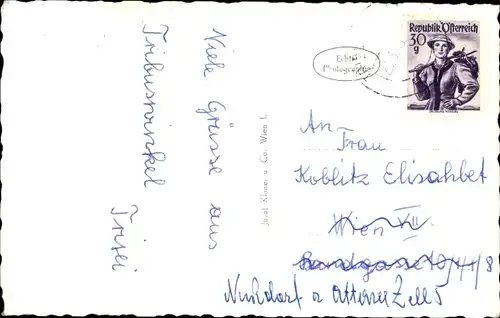 Viele Grüsse aus
Tribuswinkel
Trisei
Josef Klimes u. Co. Wien I.
Echte
Photographie
Republik Österreich
30
g
An
Frau
Koblitz Elisabeth
Wien VII
Bandgasse
Nußdorf a Attersee Zell 5